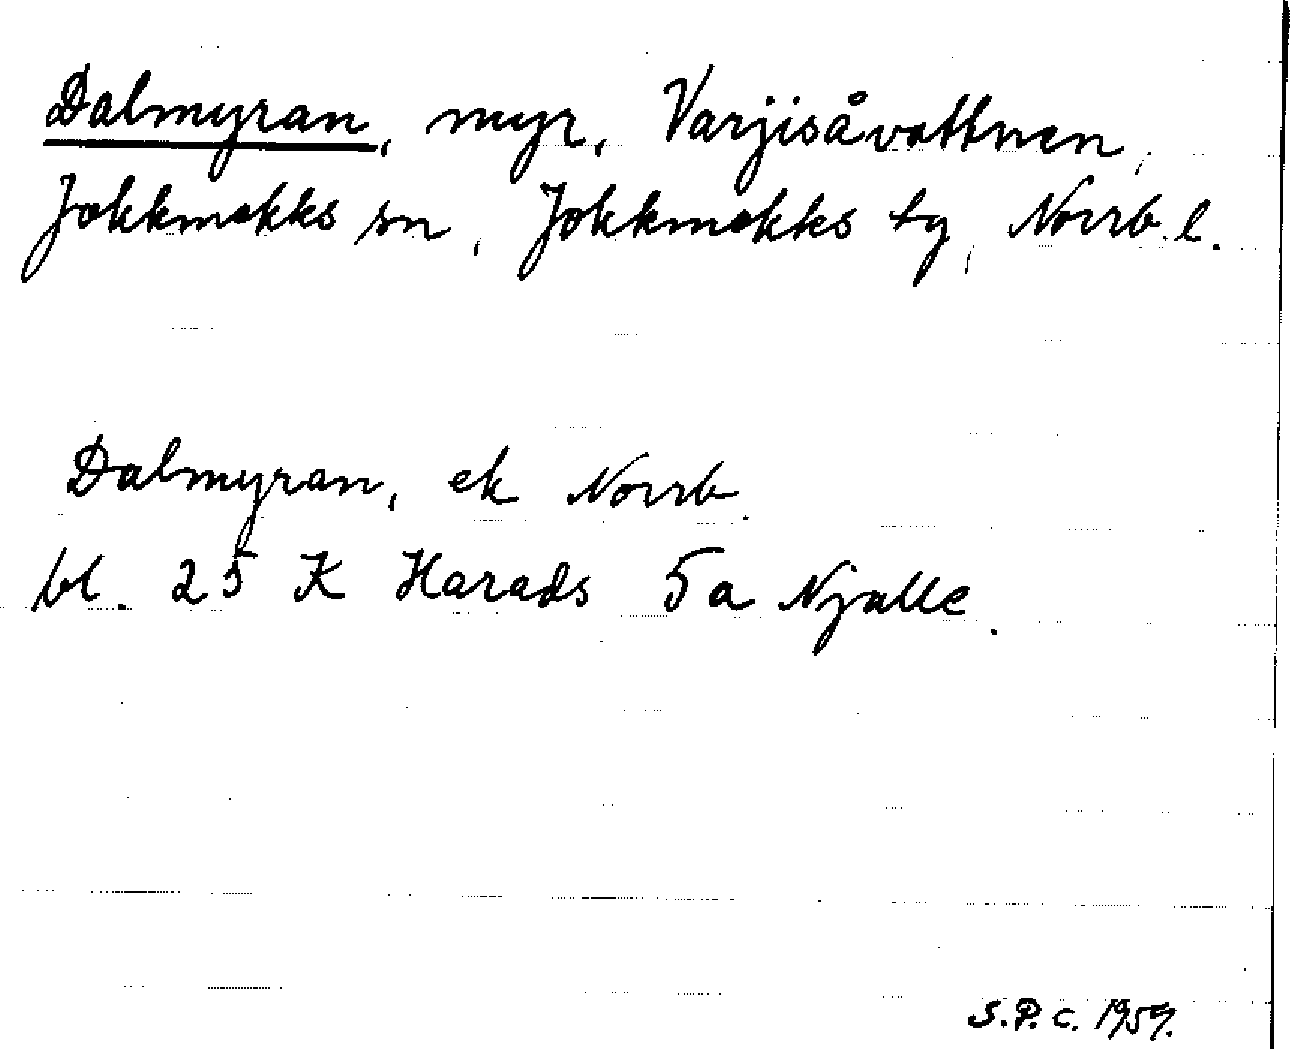 Dalmyran, myr, Varjisåvattnen,
Jokkmokks sn, Jokkmokks tg, Norrb. l.
Dalmyran, ek Norrb.
bl. 25 K Harads 5a Njalle.
S.P.C. 1959.